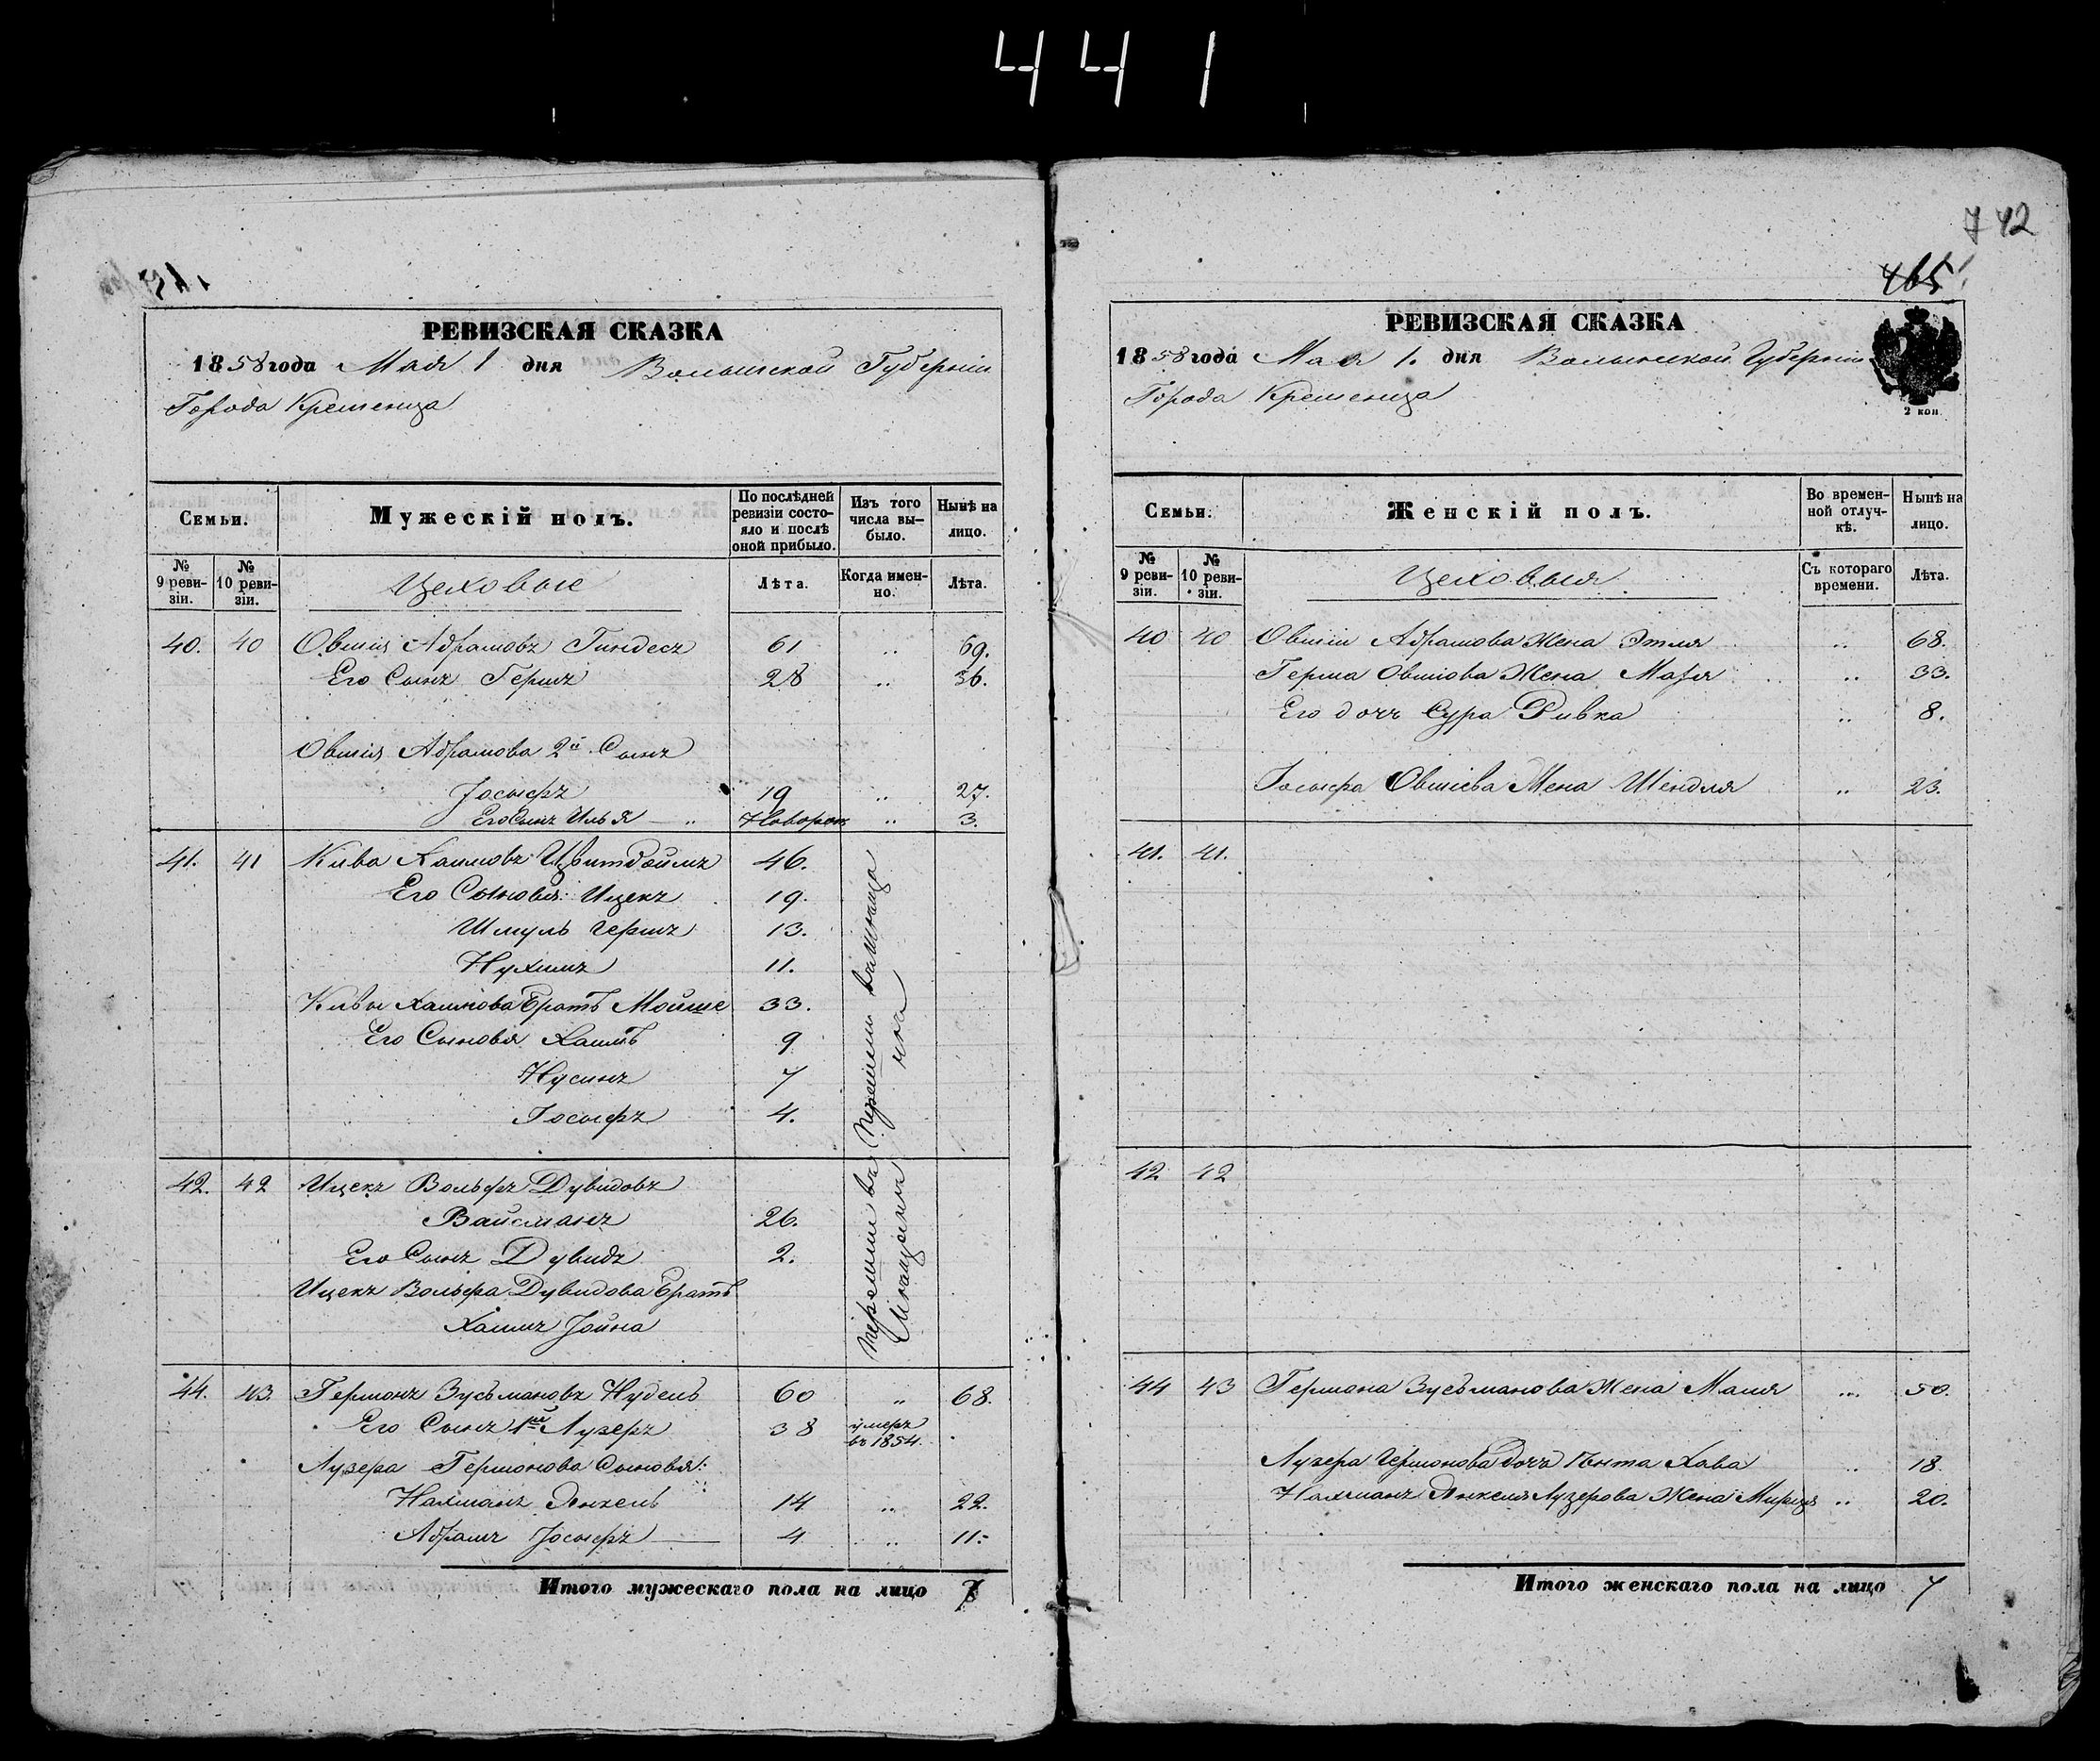 441
742
465
РЕВИЗСКАЯ СКАЗКА
1858 года Мая 1 дня Волынской Губерніи
Города Кременца
Семьи.
Мужескій полъ.
По послѣдней ревизіи состояло и послѣ оной прибыло.
Изъ того числа выбыло.
Нынѣ на лицо.
№ 9 ревизіи.
№ 10 ревизіи.
Цеховые
Лѣта.
Когда именно.
Лѣта.
40. 40 Овшія Абрамовъ Гиндесъ 61 .. 69.
Его Сынъ Гершъ 28 .. 36.
Овшія Абрамова 2й Сынъ
Іосыфъ 19 .. 27.
Его Сынъ Илья .. Новорож .. 3.
41. 41 Кива Хаимовъ Цвитбоймъ 46.
Его Сыновья: Ицекъ 19.
Шмуль Гершъ 13.
Нухимъ 11.
Кивы Хаимова Братъ Мойше 33.
Его Сыновья Хаимъ 9
Нусинъ 7
Іосыфъ 4.
42. 42 Ицекъ Вольфъ Дувидовъ
Вайсманъ 26.
Его Сынъ Дувидъ 2.
Ицекъ Вольфа Дувидова Братъ
Хаимъ Іойна
перешли въ
44. 43. Германъ Зусьмановъ Нудель 60 „ 68.
Его Сынъ 1й Лузеръ 38 умеръ въ 1854.
Лузера Германова Сыновья:
Нахманъ Янкель 14 .. 22.
Абрамъ Іосыфъ 4 .. 11.
Итого мужескаго пола на лицо 7
РЕВИЗСКАЯ СКАЗКА
1858 года Мая 1. дня Волынской Губерніи
Города Кременца
2 коп
Семьи.
Женскій полъ.
Во временной отлучкѣ.
Нынѣ на лицо.
№ 9 ревизіи.
№ 10 ревизіи.
Цеховыя
Съ котораго времени.
Лѣта.
40 40 Овшіи Абрамова Жена Этля .. 68.
Герша Овшіова Жена Мася .. 33.
Его дочь Сура Ривка .. 8.
Іосыфа Овшіева Жена Шендля .. 23.
41. 41.
42 42
44 43 Германа Зусьманова Жена Маля ... 50.
Лузера Германова дочь Хава .. 18.
Нахмана Янкеля Лузерова Жена .. 20.
Итого женскаго пола на лицо 7